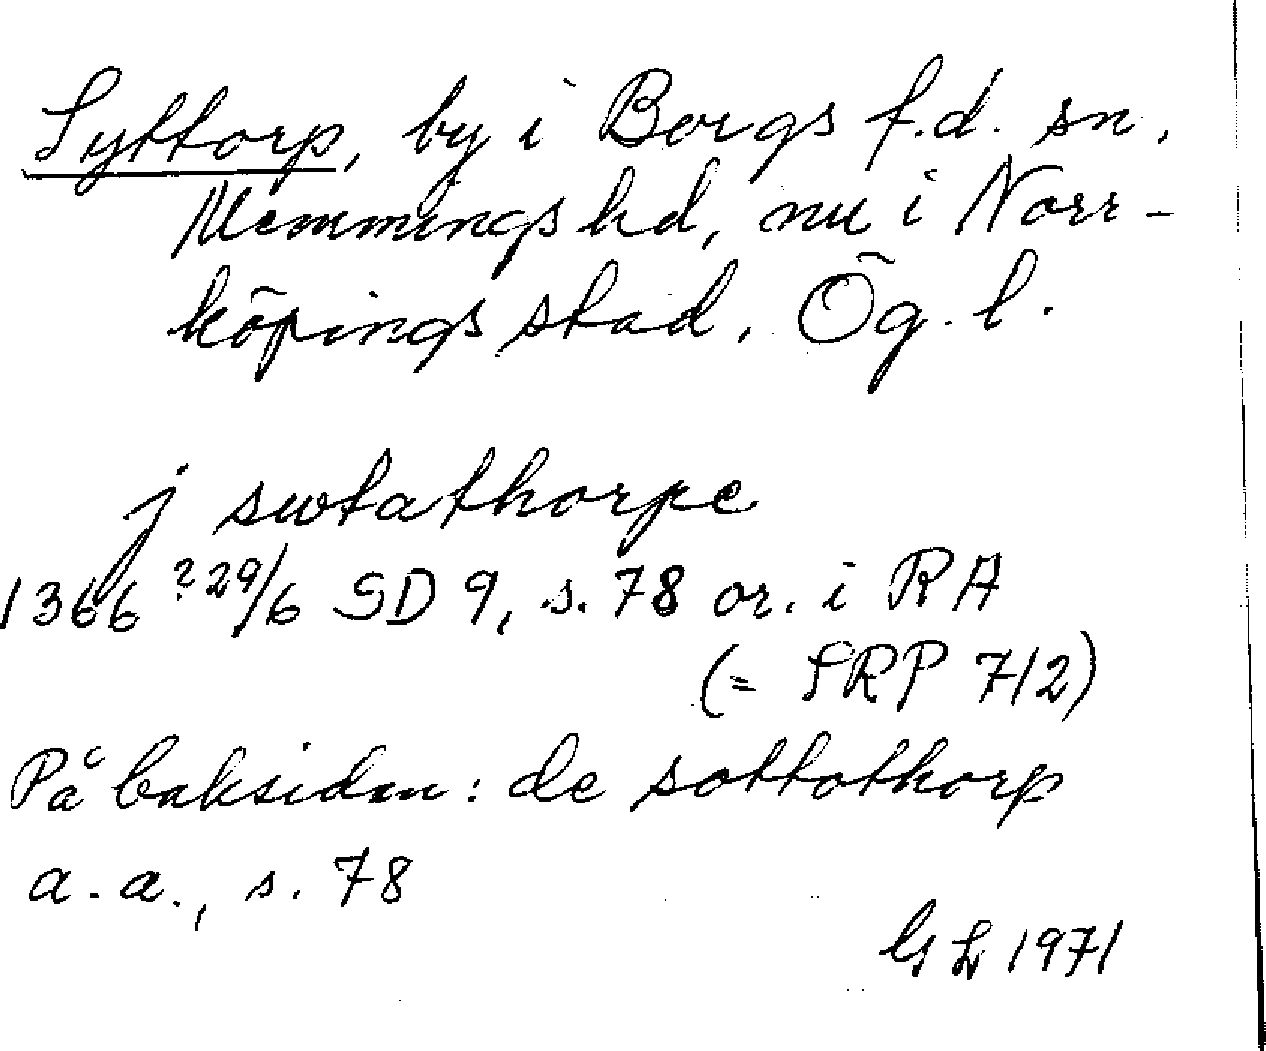 Syttorp, by i Borgs f.d. sn,
Memmings hd, nu i Norr-
köpings stad, Ög. l.
j swtathorpe
1366 ? 29/6 SD 9, s. 78 or. i RA
(= SRP 712)
På baksidan: de sottothorp
a.a., s. 78
GL 1971